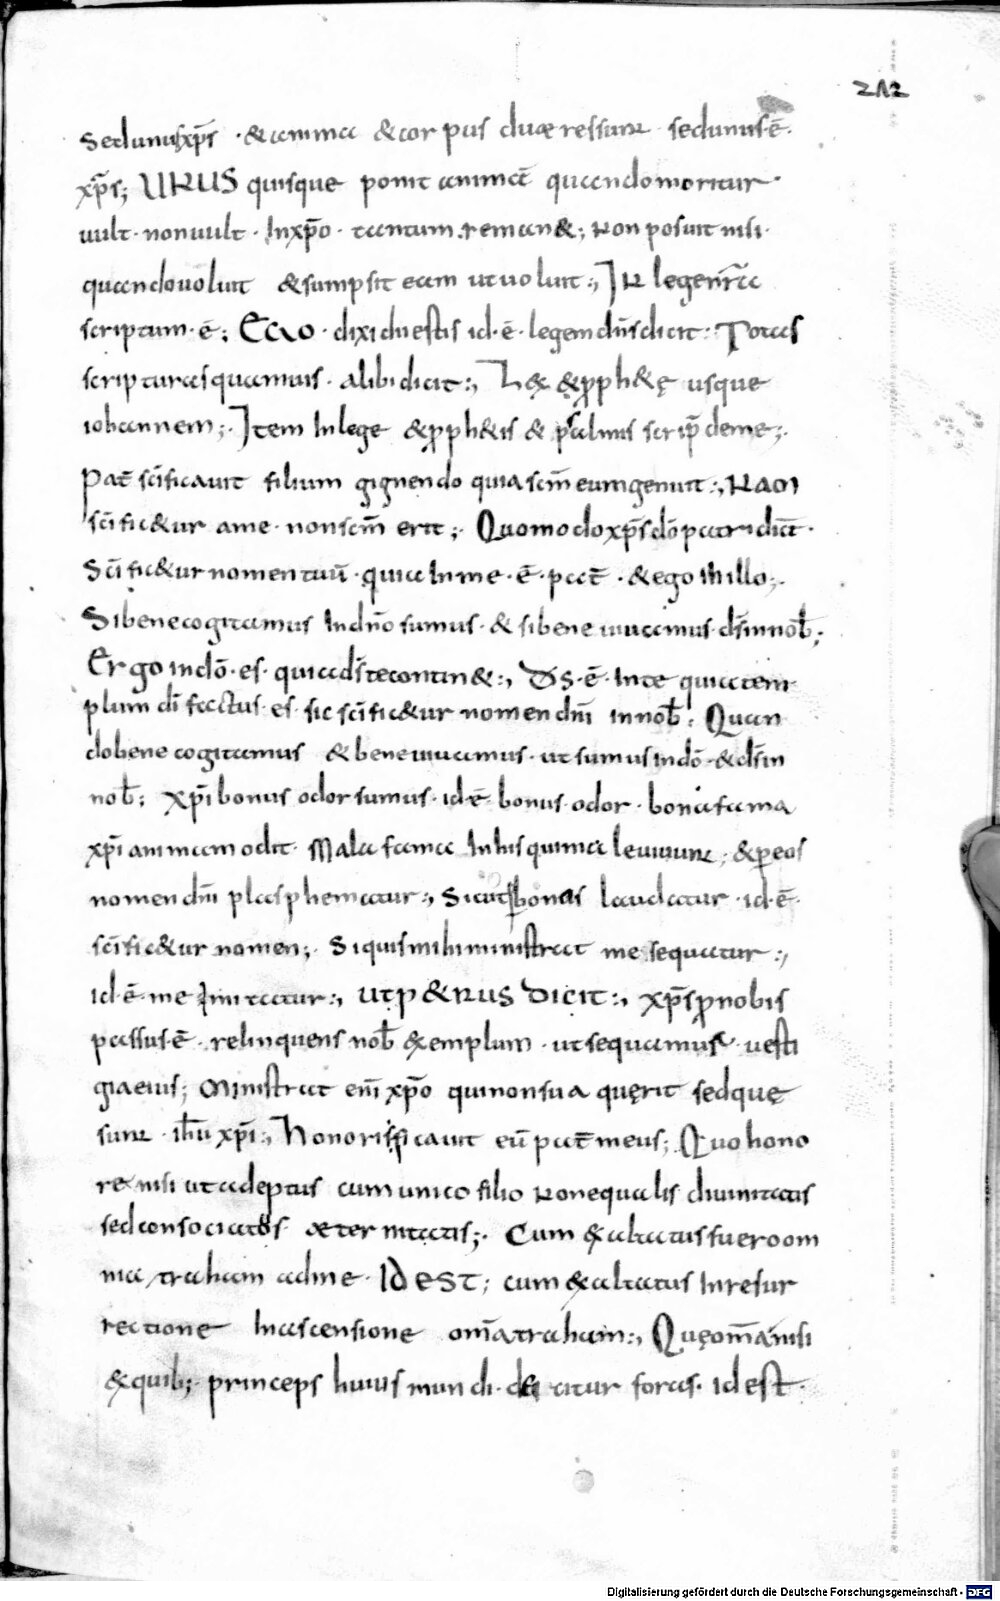 212
sed unus xp̄s · & anima & corpus duæ res sunt sed unus ē·
xp̄s; URUS quisque ponit animā quando moritur·
uult· non uult· In xp̄o· tantum reman&; Non posuit nisi·
quando uoluit & sumpsit eam ut uoluit:, IN lege nr̄a
scriptum· ē; EGO· dixi dii estis id· ē· legem dn̄s dicit: Totas
scripturas quamuis· alibi dicit:, Lex & p̱ph&ę usque
iohannem;· Item In lege & p̱ph&is & psalmis scrip̄ de me;·
Pat̄ sc̄ificauit filium gignendo quia sc̄m eum genuit:, NAM
sc̄ific&ur a me· non sc̄m erit;· Quomodo xp̄s dō patri dic̄t·
Sc̄ific&ur nomen tuū· quia In me· ē· pat̄· & ego In illo;·
Si bene cogitamus In dn̄o sumus· & si bene uiuamus· ds̄ in nob̄;
Ergo in dō· es· quia ds̄ te contin&:, DS· ē· In te quia tem
plum dī factus· es· sic sc̄ific&ur nomen dn̄i in nob̄: Quan
do bene cogitamus & bene uiuamus· ut sumus In dō· & ds̄ in
nob̄; xp̄i bonus odor sumus· id· ē· bonus odor· bona fama
xp̄i animam odit· Mala fama In his qui male uiuunt; & p̱ eos
nomen dn̄i plasphematur:, Sicut p̱ bonos laudatur· id· ē·
sc̄ific&ur nomen;· Si quis mihi ministrat me sequatur:,
id· ē· me Imitatur:, UT P&RUS DICIT:, xp̄s p̱ nobis
passus· ē· relinquens nob̄ exemplum· ut sequamur uesti
gia eius; Ministrat eni̅ xp̄o qui non sua quęrit sed quę
sunt· ih̄u xp̄i:, Honorificauit eū pat̄ meus; Quo hono
re nisi ut adeptus cum unico filio Non equalis diuinitatis
sed consociatos æternitatis;· Cum exaltatus fuero om
nia traham ad me· ID EST; cum exaltatus In resur
rectione In ascensione om̄a traham:, Quę om̄a nisi
ex quib;· princeps huius mundi· eicitur foras· id est·
Digitalisierung gefördert durch die Deutsche Forschungsgemeinschaft - DFG